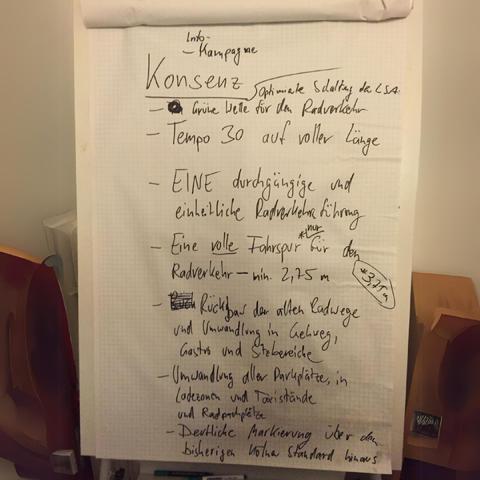 Info-
- Kampagne
Konsenz
Optimale Schaltung der LSA
- Grüne Welle für den Radverkehr
- Tempo 30 auf voller Länge
- EINE durchgängige und
einheitliche Radverkehrsführung
*nur
- Eine volle Fahrspur für den
Radverkehr - min. 2,75 m
*3,75 m
- Rückbau der alten Radwege
und Umwandlung in Gehweg,
Gastro und Stehbereiche
- Umwandlung aller Parkplätze, in
Ladezonen und Taxistände
und Radparkplätze
- Deutliche Markierung über den
bisherigen Kölna Standard hinaus